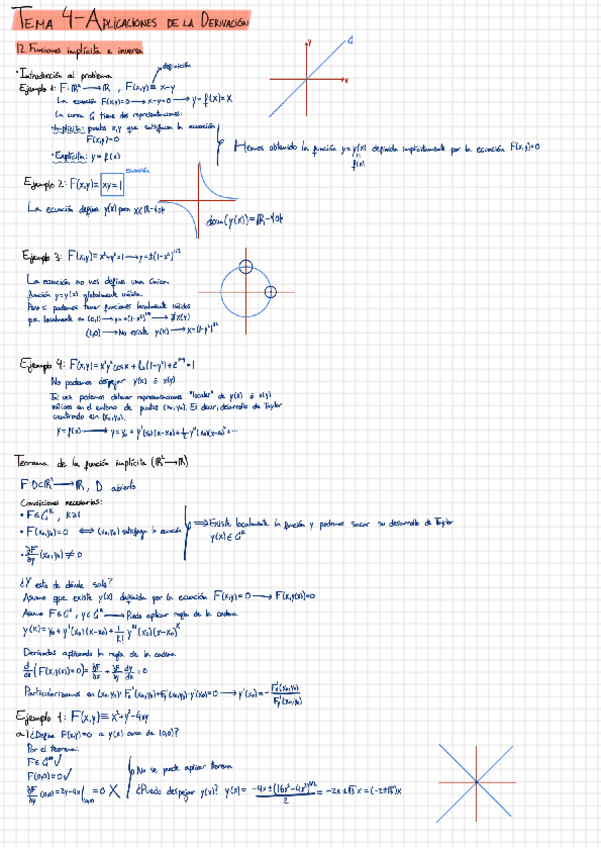 TEMA 4-APLICACIONES DE LA DERIVACIÓN
12. Funciones implícita e inversa
· Introducción al problema
definición
Ejemplo 1: F: ℝ² → ℝ , F(x,y) = x-y
La ecuación F(x,y)=0 → x-y=0 → y=f(x)=x
La curva G tiene dos representaciones:
· Implícita: puntos x,y que satisfacen la ecuación
F(x,y)=0
· Explícita: y=f(x)
Hemos obtenido la función y=y(x) definida implícitamente por la ecuación F(x,y)=0
f(x)
ecuación
Ejemplo 2: F(x,y)= xy=1
La ecuación define y(x) para x∈ℝ-{0}
dom(y(x))=ℝ-{0}
Ejemplo 3: F(x,y)=x²+y²=1 → y=±(1-x²)^1/2
La ecuación no nos define una única
función y=y(x) globalmente válida.
Pero sí podemos tener funciones localmente válidas
p.e. localmente en (0,1) → y=+(1-x²)^1/2 → ∃y(x)
(1,0) → No existe y(x) → x=(1-y²)^1/2
Ejemplo 4: F(x,y)=x²y³cosx + ln(1-y²)+e^x-y=1
No podemos despejar y(x) ó x(y)
Tal vez podamos obtener representaciones "locales" de y(x) ó x(y)
válidas en el entorno de puntos (x₀,y₀). Es decir, desarrollo de Taylor
centrado en (x₀,y₀).
y=f(x) → y=y₀ + y'(x₀)(x-x₀)+½ y''(x₀)(x-x₀)²+...
Teorema de la función implícita (ℝ² → ℝ)
F: D⊂ℝ² → ℝ , D abierto
Condiciones necesarias:
· F∈C^K , K≥1
· F(x₀,y₀)=0 ⟺ (x₀,y₀) satisfacen la ecuación
· ∂F/∂y (x₀,y₀) ≠ 0
⟹ Existe localmente la función y podemos sacar su desarrollo de Taylor
y(x)∈C^K
¿Y esto de dónde sale?
Asumo que existe y(x) definida por la ecuación F(x,y)=0 → F(x,y(x))=0
Asumo F∈C^K, y∈C^K → Puedo aplicar regla de la cadena
y(x)=y₀+y'(x₀)(x-x₀)+1/K! y^K(x₀)(x-x₀)^K
Derivadas aplicando la regla de la cadena:
d/dx (F(x,y(x))=0)= ∂F/∂x + ∂F/∂y dy/dx =0
Particularizamos en (x₀,y₀): Fx'(x₀,y₀)+Fy'(x₀,y₀)·y'(x₀)=0 → y'(x₀)=- Fx'(x₀,y₀)/Fy'(x₀,y₀)
Ejemplo 1: F(x,y)≡x²+y²-4xy
a) ¿Define F(x,y)=0 a y(x) cerca de (0,0)?
Por el teorema:
F∈C^∞ ✓
F(0,0)=0 ✓
∂F/∂y (0,0)=2y-4x|(0,0) =0 X
No se puede aplicar teorema
¿Puedo despejar y(x)? y(x)= -4x±(16x²-4x²)^1/2 / 2 = -2x±√3 x=(-2±√3)x